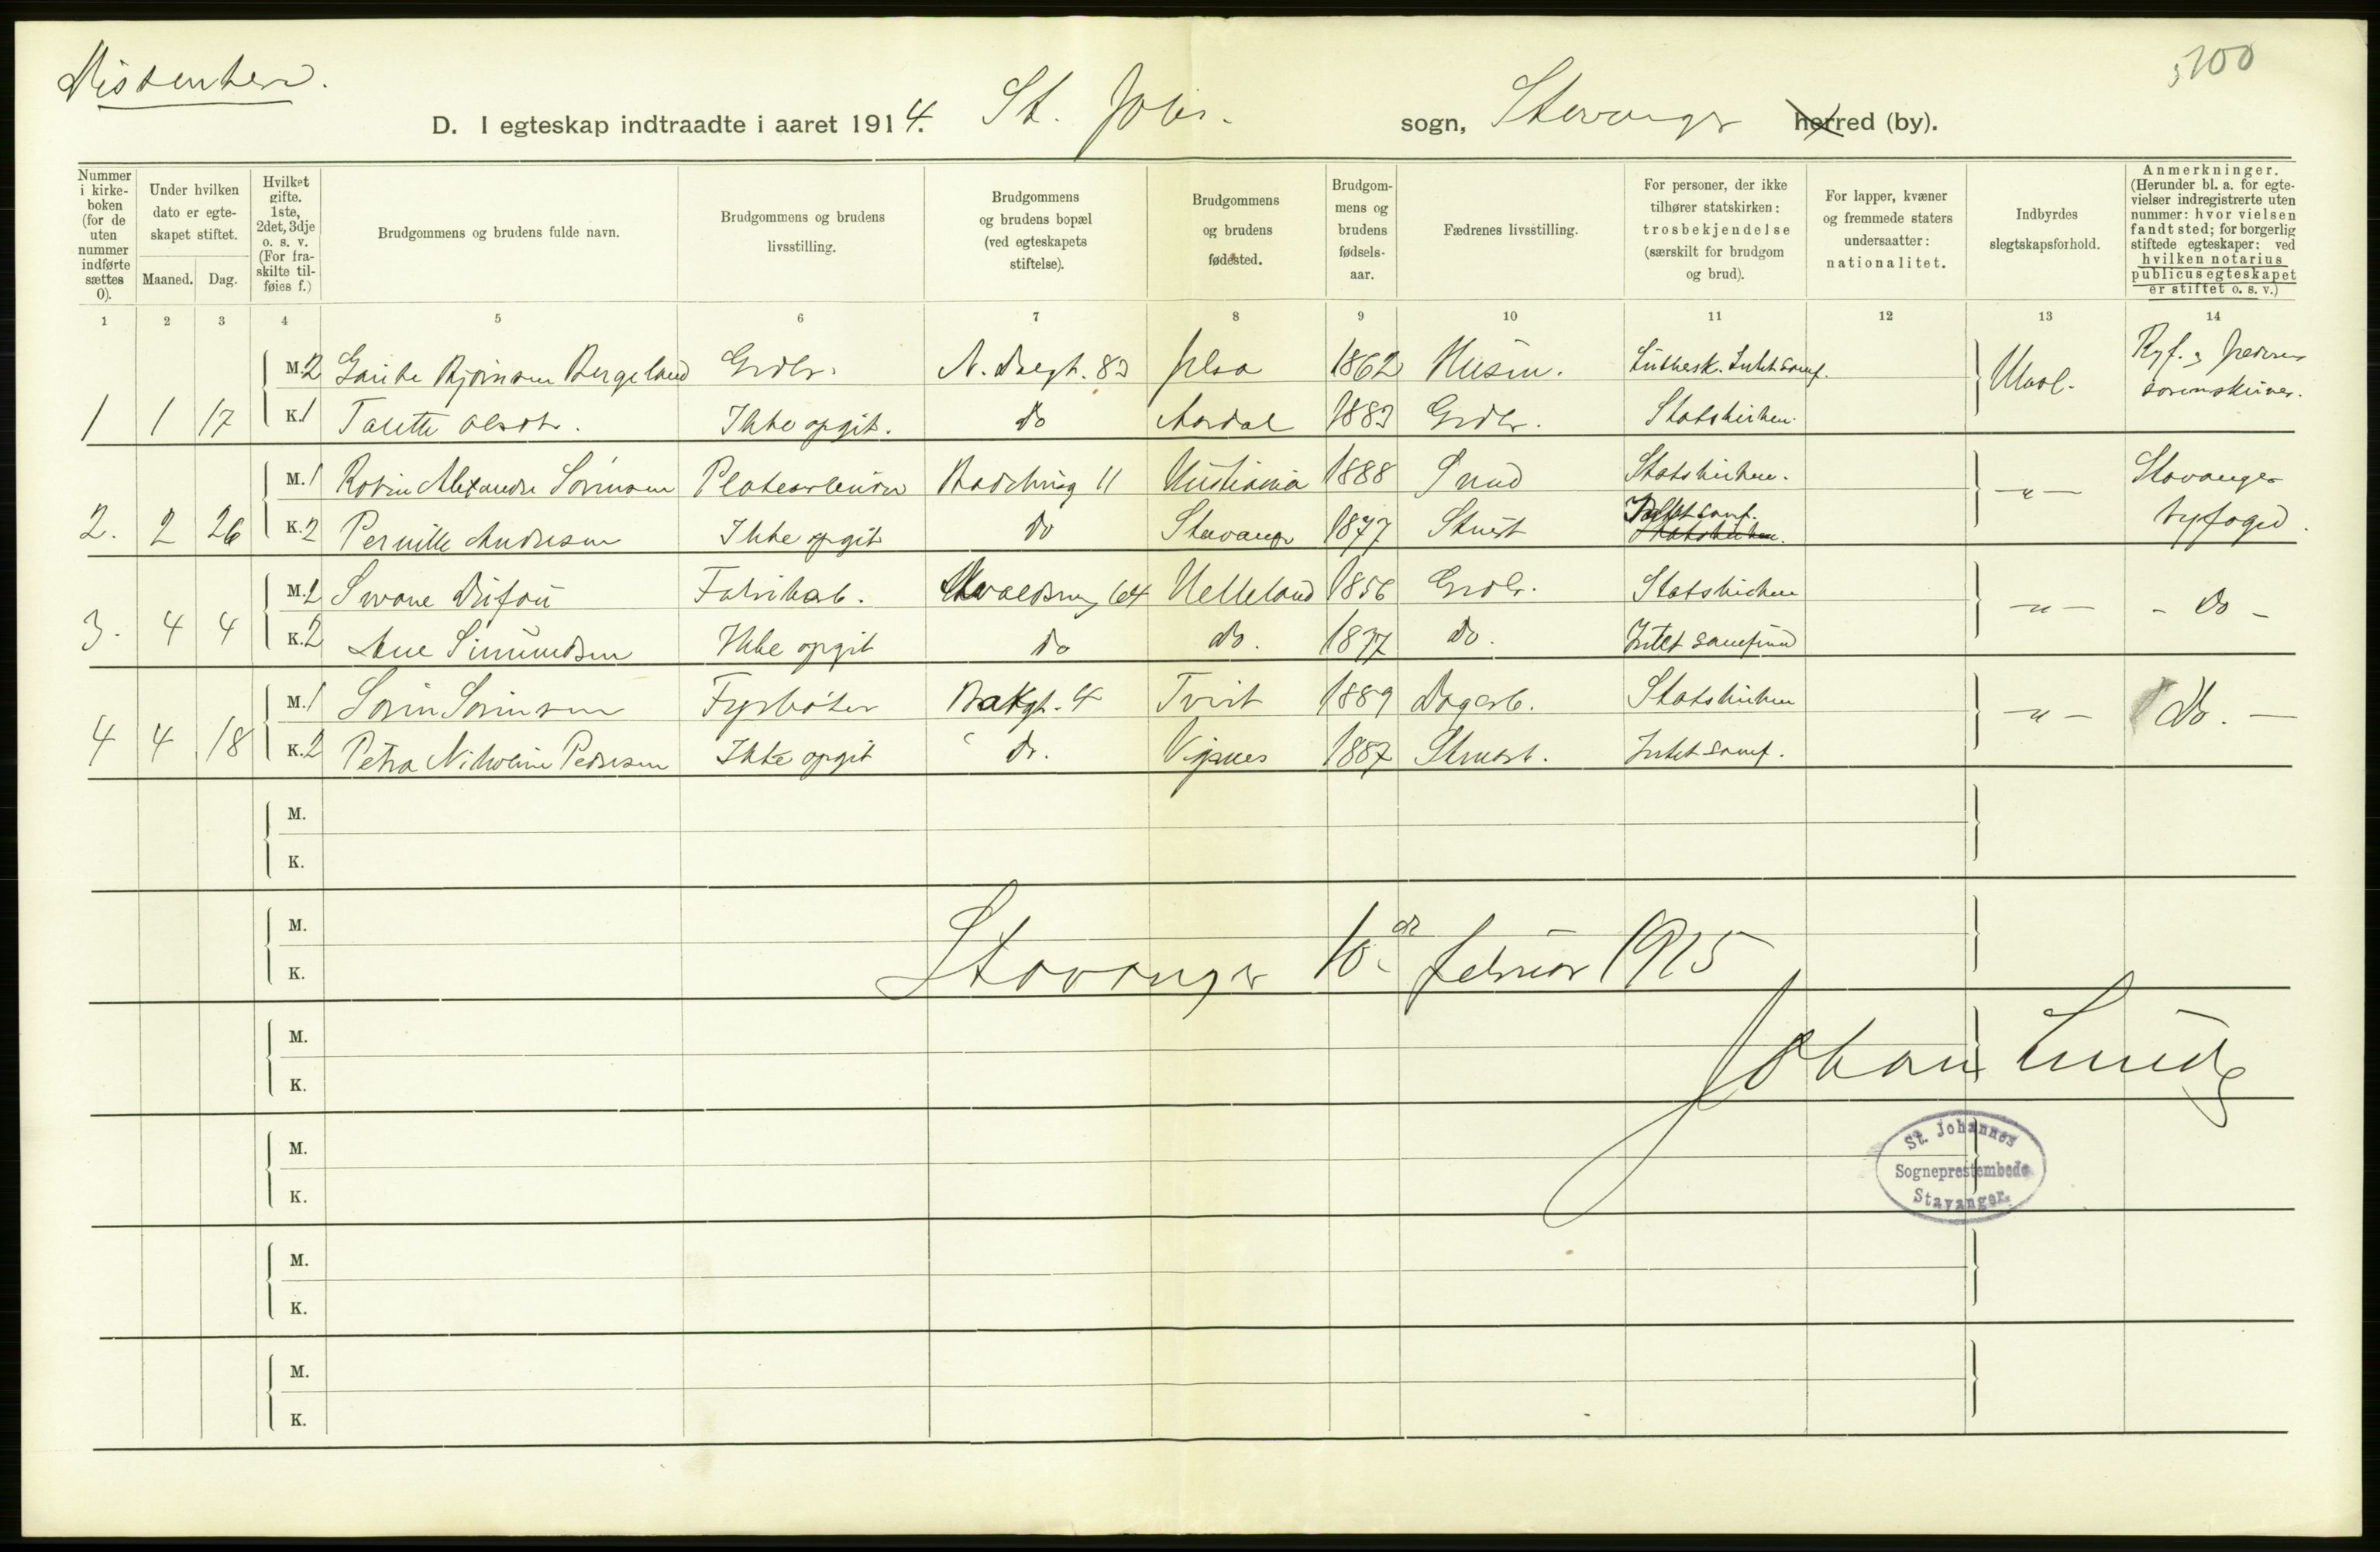 Dissentere.
100
D. I egteskap indtraadte i aaret 1914. St. Johs. sogn, Stavanger herred (by).
Nummer i kirkeboken (for de uten nummer indførte sættes 0).
Under hvilken dato er egteskapet stiftet.
Maaned. Dag.
Hvilket gifte. 1ste, 2det, 3dje o. s. v. (For fraskilte tilføies f.)
Brudgommens og brudens fulde navn.
Brudgommens og brudens livsstilling.
Brudgommens og brudens bopæl (ved egteskapets stiftelse).
Brudgommens og brudens fødested.
Brudgommens og brudens fødselsaar.
Fædrenes livsstilling.
For personer, der ikke tilhører statskirken: trosbekjendelse (særskilt for brudgom og brud).
For lapper, kvæner og fremmede staters undersaatter: nationalitet.
Indbyrdes slegtskapsforhold.
Anmerkninger. (Herunder bl. a. for egtevielser indregistrerte uten nummer: hvor vielsen fandt sted; for borgerlig stiftede egteskaper: ved hvilken notarius publicus egteskapet er stiftet o. s. v.)
1 2 3 4 5 6 7 8 9 10 11 12 13 14
M. 2 Bjørnsen Bergeland Grdbr. 83 Jelsa 1862 Husm. Luthersk. Intet samf. Ubesl. Ryf. sorenskriver.
1 1 17 K. 1 Talette Olsdtr. Ikke opgit. do Aardal 1883 Grdbr. Statskirken.
M. 1 Alexander Sørensen Platearbeider 11 Kristiania 1888 Smed Statskirken. -"- Stavanger
2. 2 26 K. 2 Pernille Andersen Ikke opgit do Stavanger 1877 Intet samf. Statskirken. byfoged.
M. 2 Fabrikarb. 64 Helleland 1856 Grdbr. Statskirken -"- - Do -
3. 4 4 K. 2 Ane Simundsen Ikke opgit do do. 1877 do. Intet samfund
M. 1 Sørin Sørinsen Fyrbøter Bakgt. 4 Tveit 1889 Dagarb. Statskirken -"- Do. -
4 4 18 K. 2 Petra Nikoline Pedersen Ikke opgit do. Vignes 1887 Intet samf.
M.
K.
M.
K.
Stavanger 10de februar 1915
M.
K.
Johan Lund
M.
K.
St. Johannes
Sogneprestembede
Stavanger.
M.
K.
M.
K.